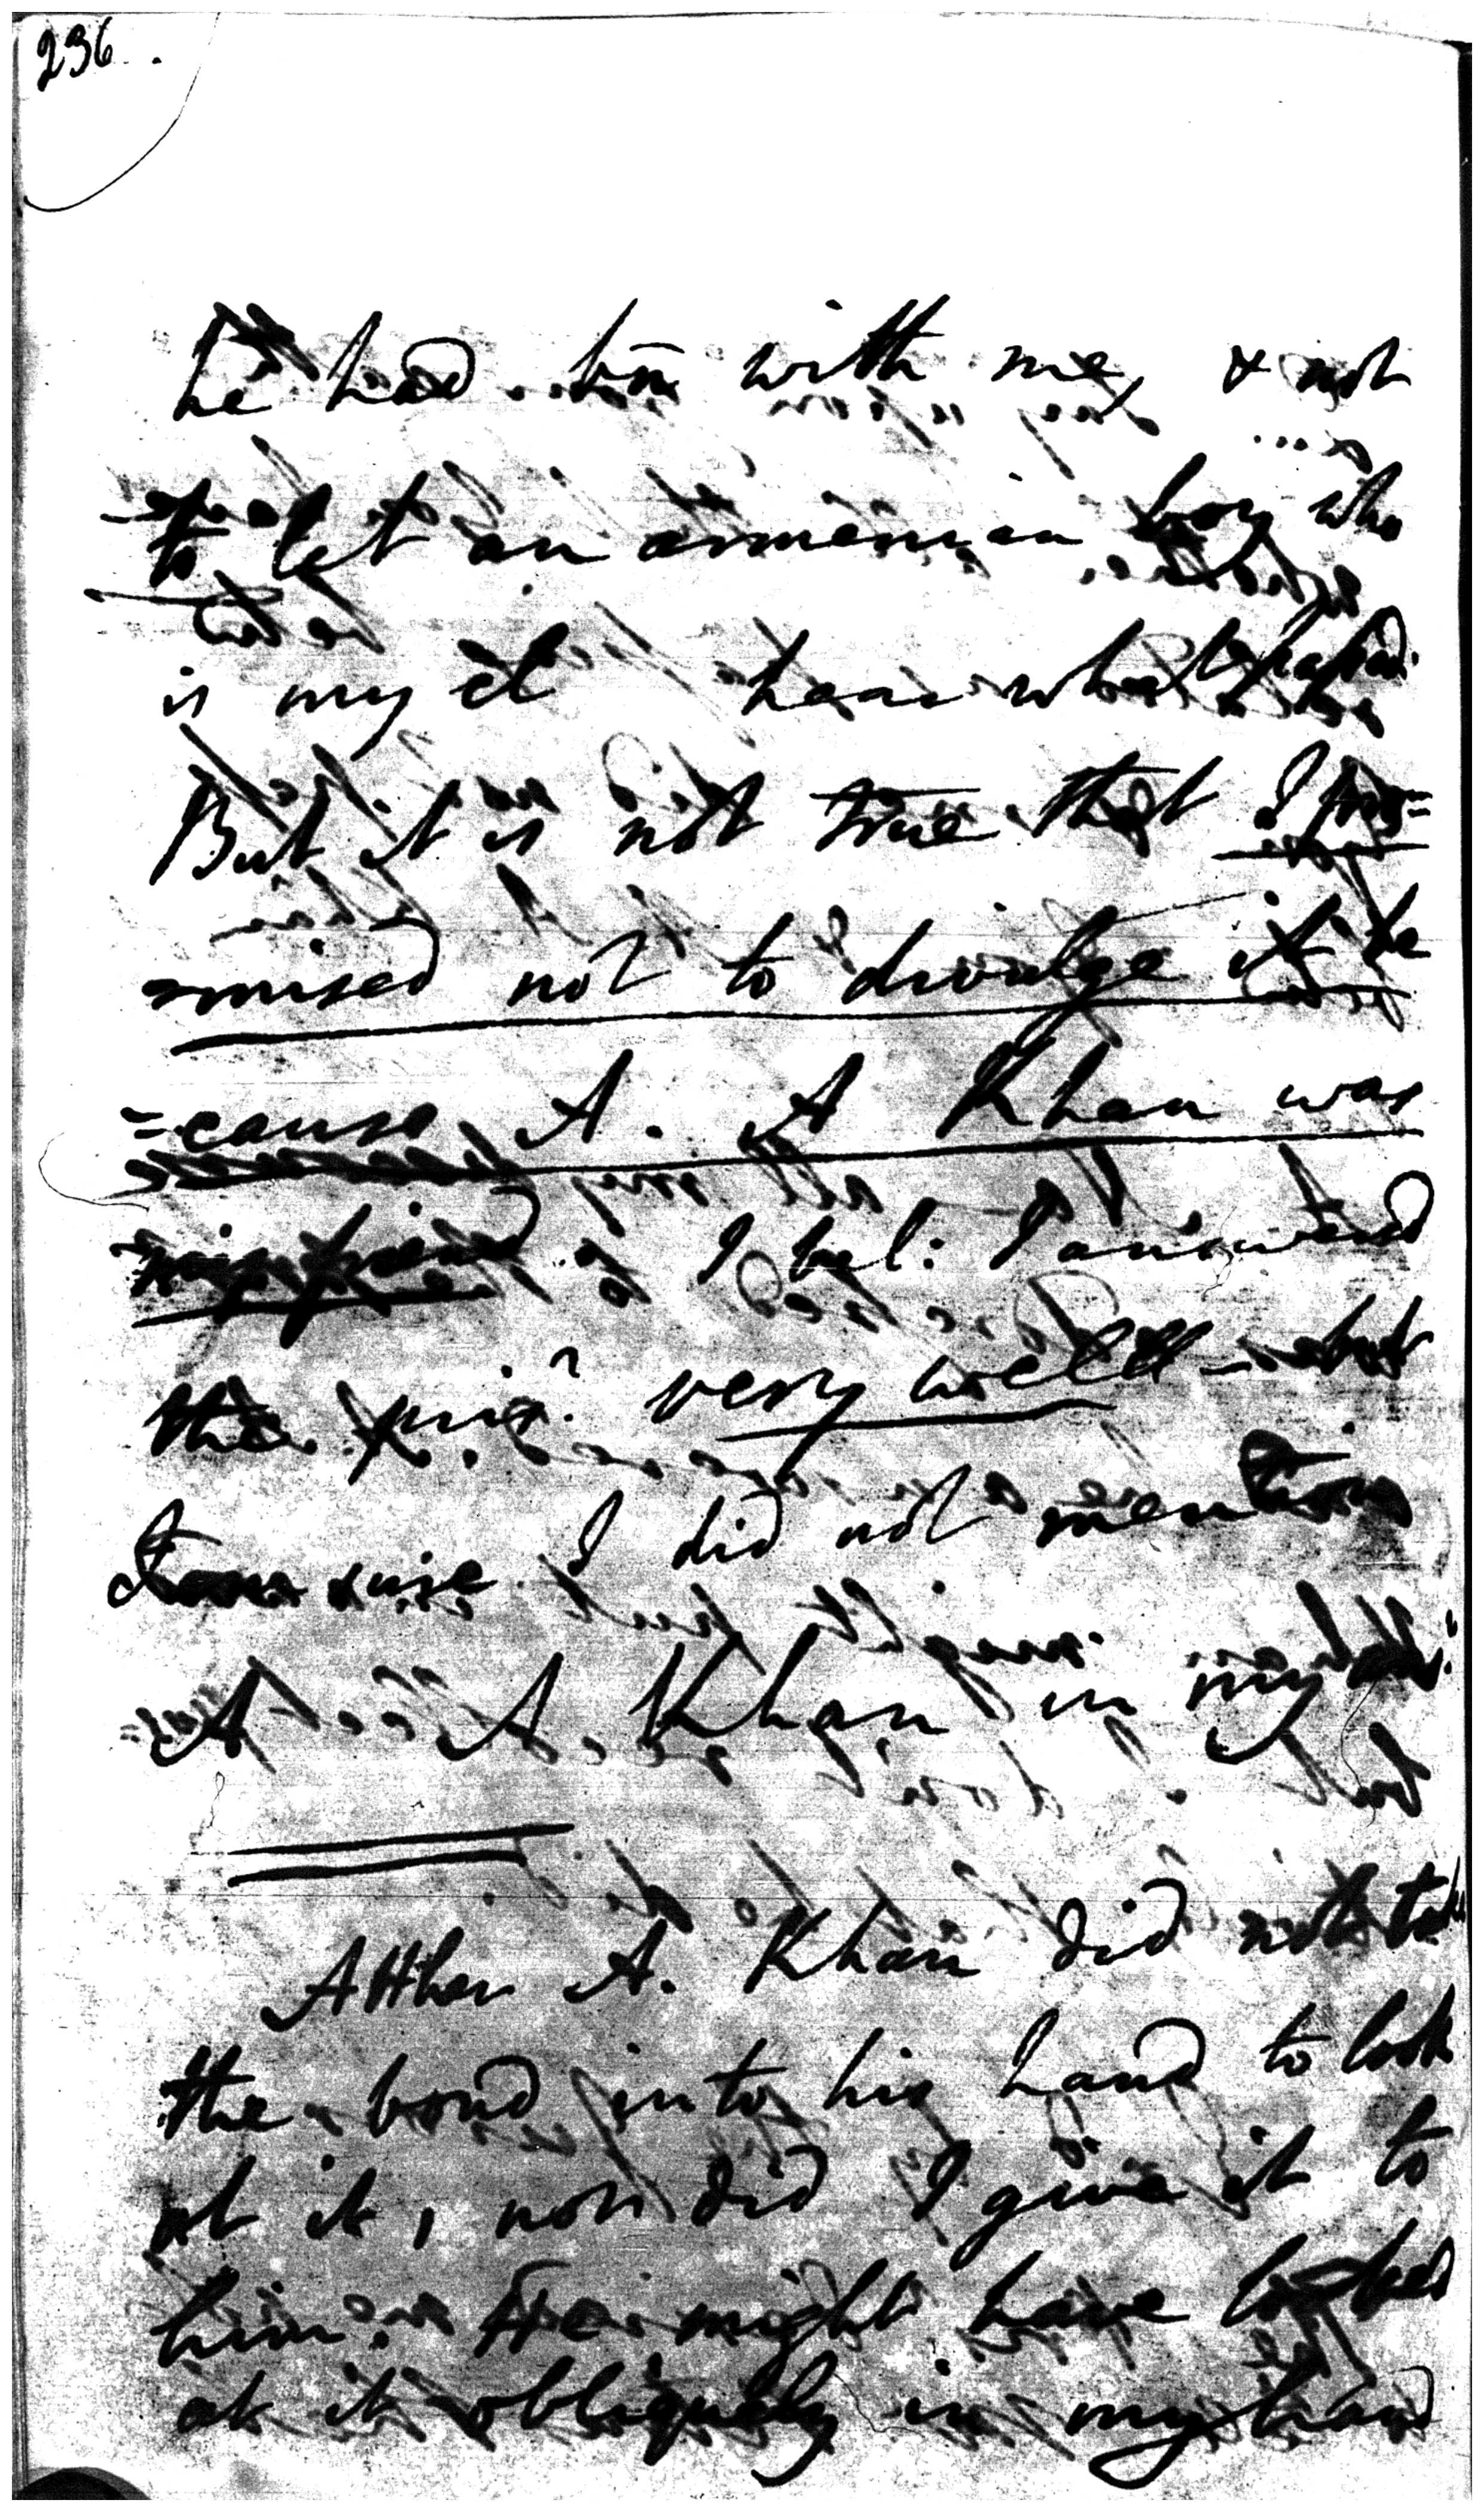 236.
he had bn̄ with me, & not
to let an armenian boy who
is my et hear what passed.
But it is not true that I pro=
mised not to divulge it be
=cause A. A Khan was
my friend I bel: I answered
the pris.r very well – but
I am sure I did not mention
A A. Khan in my
Atther A. Khan did not take
the bond into his hand to look
at it, nor did I give it to
him. He might have looked
at it obliquely in my hand